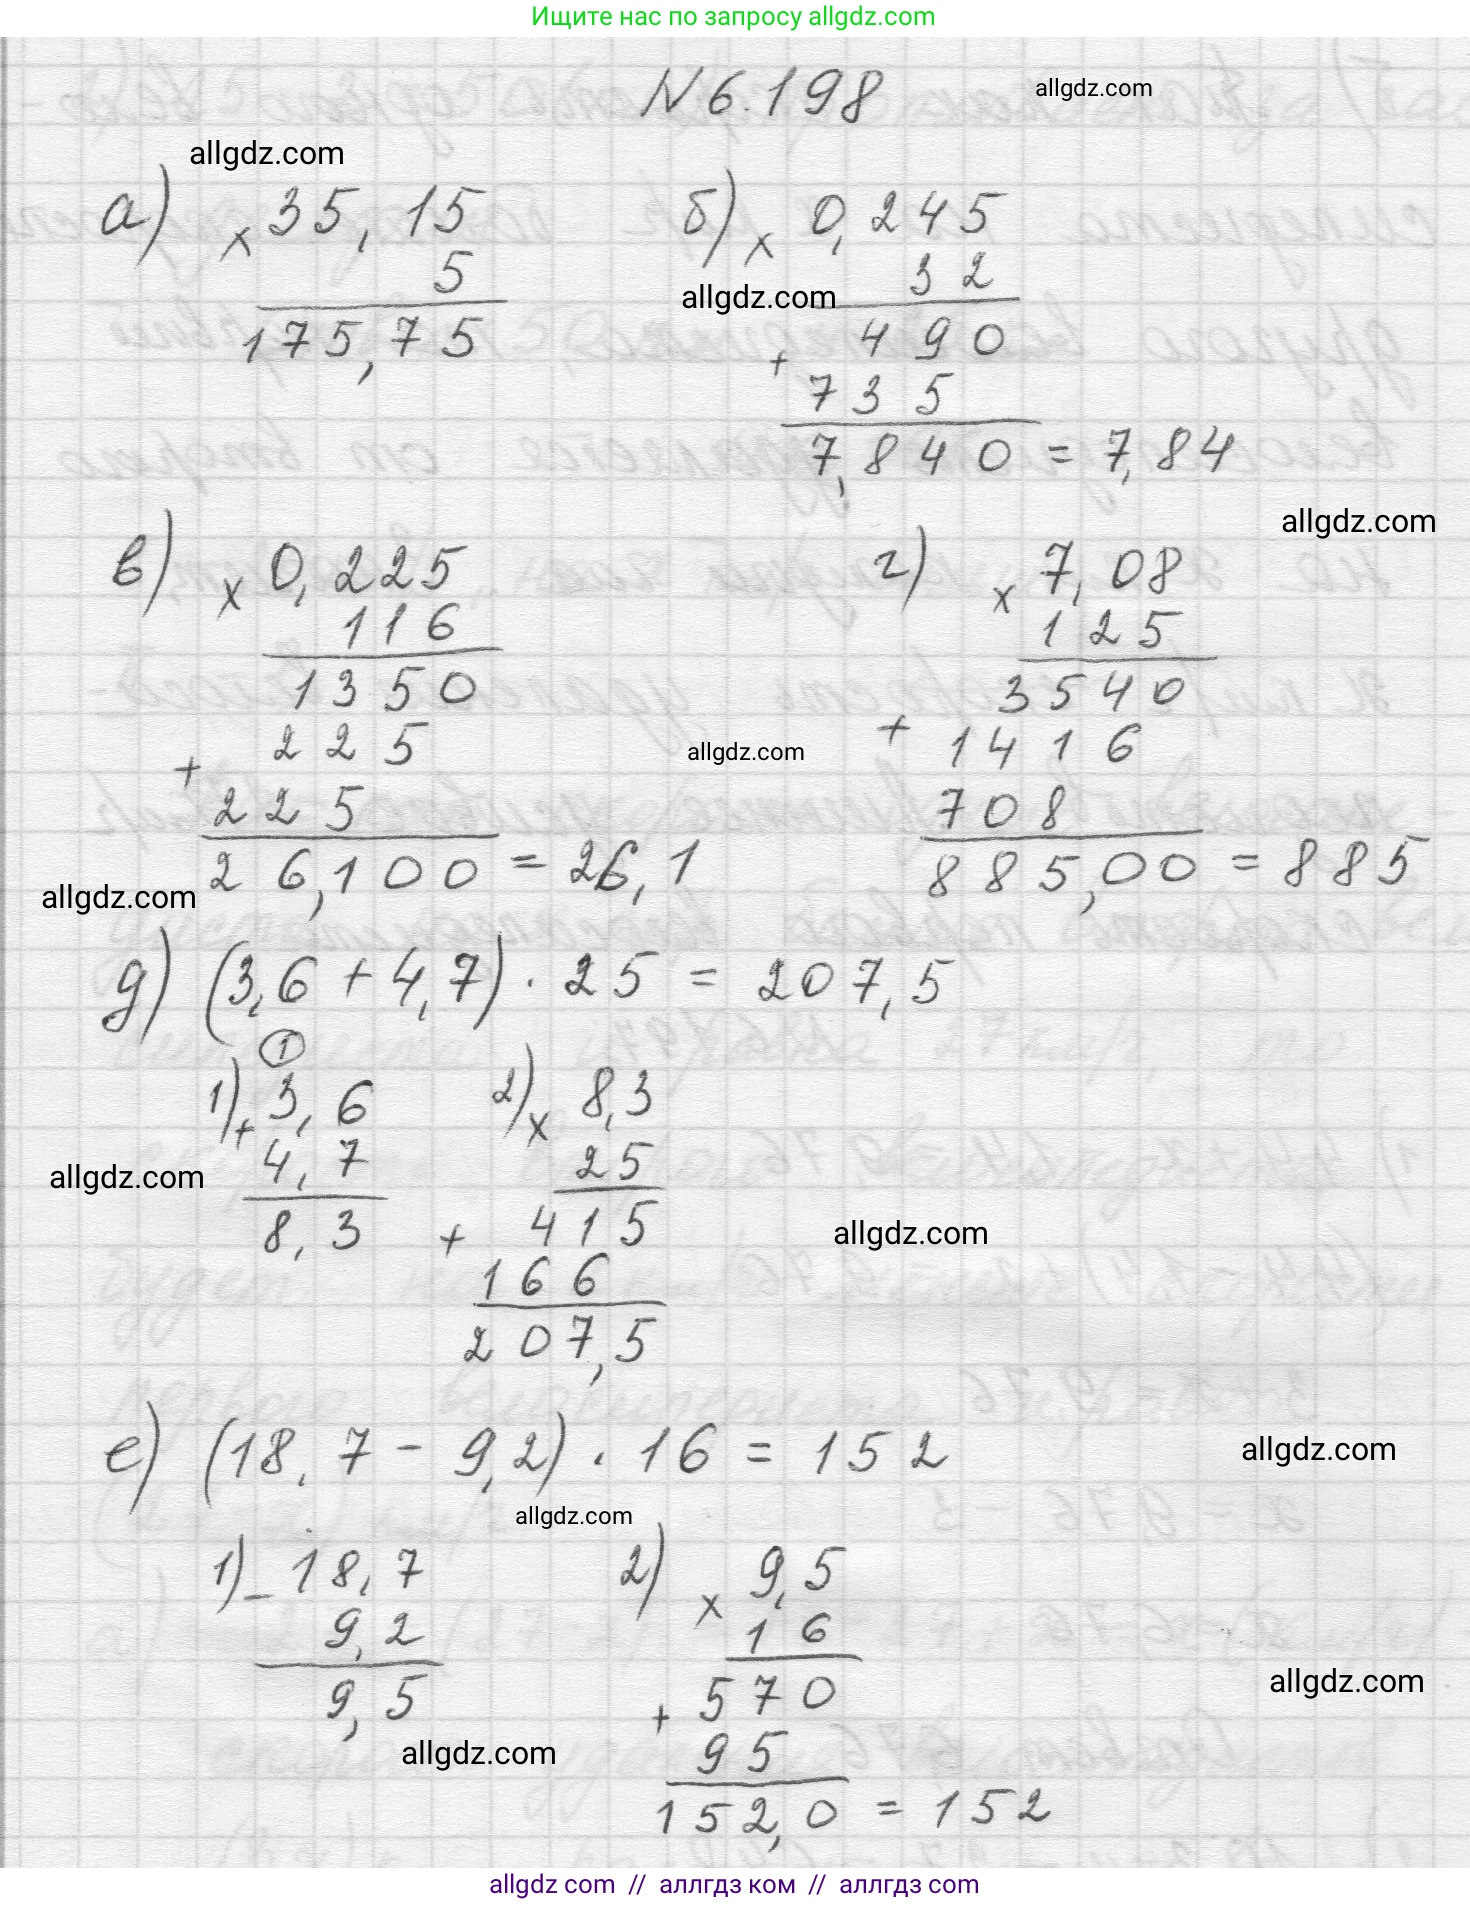 Ищите нас по запросу allgdz.com
N 6.198 allgdz.com
allgdz.com
а) × 35,15 б) × 0,245
5 32
allgdz.com
175,75 490
+ 735
7,840 = 7,84
allgdz.com
в) × 0,225 г) × 7,08
116 125
1350 3540
225 + 1416
allgdz.com
+ 225 708
26,100 = 26,1 885,00 = 885
allgdz.com
д) (3,6 + 4,7) · 25 = 207,5
1
1) + 3,6 2) × 8,3
4,7 25
allgdz.com
8,3 + 415
allgdz.com
166
207,5
е) (18,7 - 9,2) · 16 = 152
allgdz.com
allgdz.com
1) - 18,7 2) × 9,5
9,2 16
9,5 + 570
allgdz.com
allgdz.com
95
152,0 = 152
allgdz com // аллгдз ком // аллгдз com